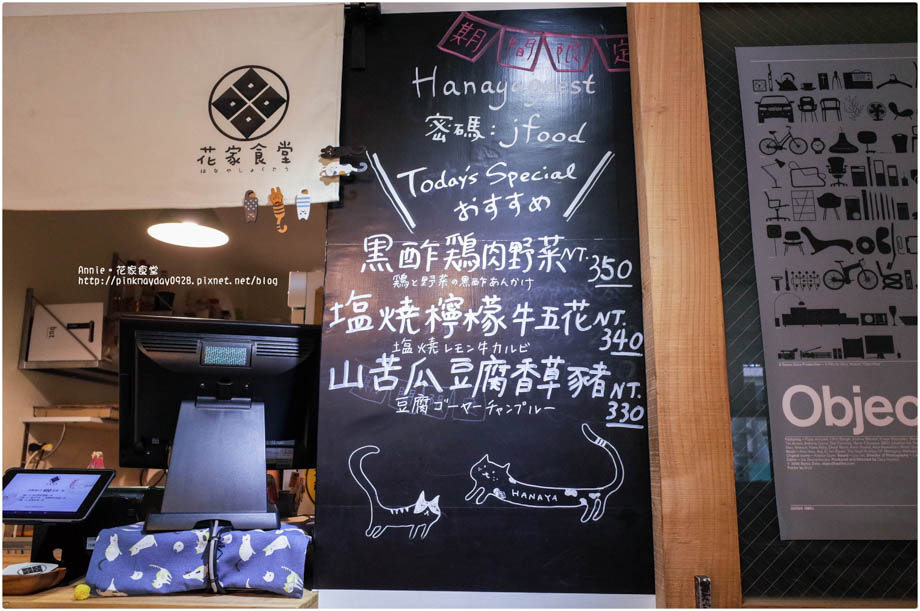 花家食堂
はなやしょくどう
Annie。花家食堂
http://pinknayday0928.pixnet.net/blog
but
期間限定
Hanayaguest
密碼：jfood
Today's Special
おすすめ
黒酢鶏肉野菜 NT. 350
鶏と野菜の黒酢あんかけ
塩燒檸檬牛五花 NT. 340
塩燒レモン牛カルビ
山苦瓜豆腐香草豬 NT. 330
豆腐ゴーヤーチャンプルー
HANAYA
Objec